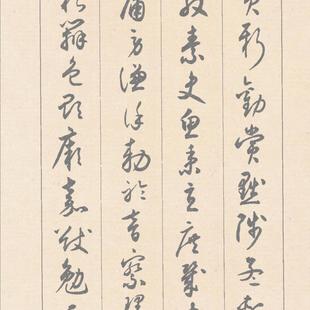 貢新勸賞黜陟孟軻
敦素史魚秉直庶幾中
庸勞謙謹敕聆音察理
貌辨色貽厥嘉猷勉其